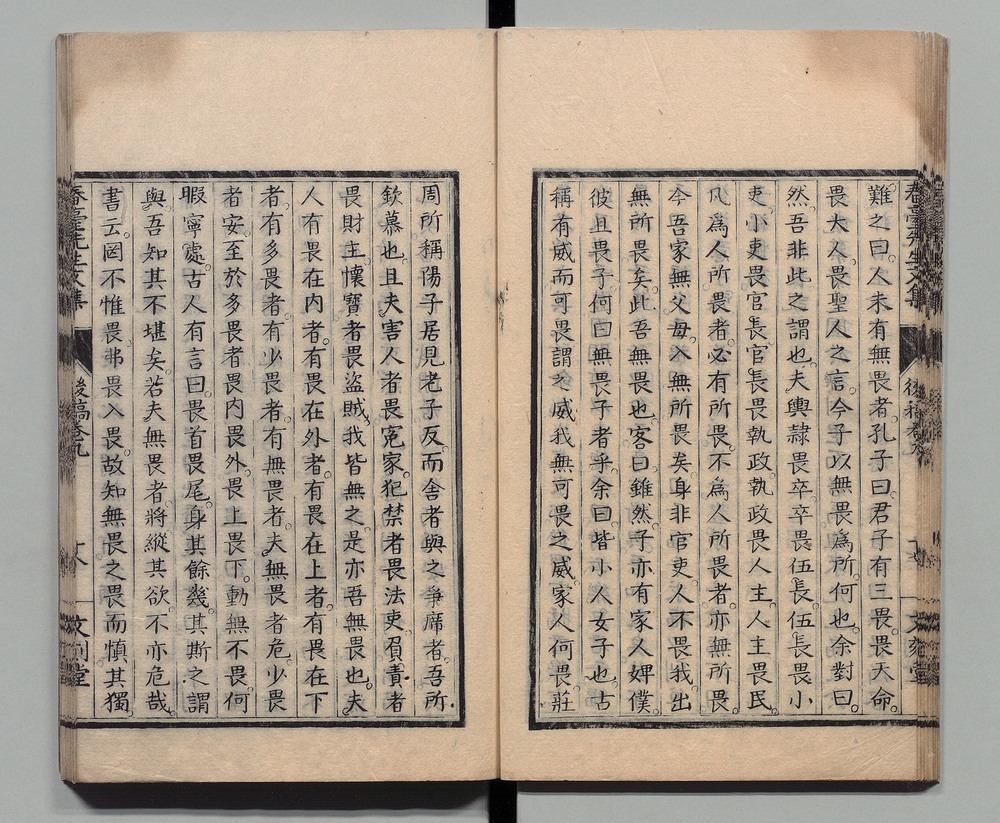 難之曰。人未有無畏者。孔子曰。君子有三畏。畏天命。
畏大人。畏聖人之言。今子以無畏爲所。何也。余對曰。
然。吾非此之謂也。夫輿隷畏卒。卒畏伍長。伍長畏小
吏。小吏畏官長。官長畏執政。執政畏人主。人主畏民。
凡爲人所畏者。必有所畏。不爲人所畏者。亦無所畏。
今吾家無父母。入無所畏矣。身非官吏。人不畏我。出
無所畏矣。此吾無畏也。客曰。雖然。子亦有家人婢僕。
彼且畏子。何曰無畏。子者乎。余曰。皆小人女子也。古
稱有威而可畏謂之威。我無可畏之威。家人何畏。莊
周所稱陽子居見老子。反而舍者與之爭席者。吾所
欽慕也。且夫害人者畏寃家。犯禁者畏法吏。負責者
畏財主。懷寶者畏盜賊。我皆無之。是亦吾無畏也。夫
人有畏在内者。有畏在外者。有畏在上者。有畏在下
者。有多畏者。有少畏者。有無畏者。夫無畏者危。少畏
者安。至於多畏者。畏内畏外。畏上畏下。動無不畏。何
暇寧處。古人有言曰。畏首畏尾。身其餘幾。其斯之謂
與。吾知其不堪矣。若夫無畏者。將縱其欲。不亦危哉。
書云。罔不惟畏。弗畏入畏。故知無畏之畏。而愼其獨。
春臺先生文集
後稿卷九
文刻堂